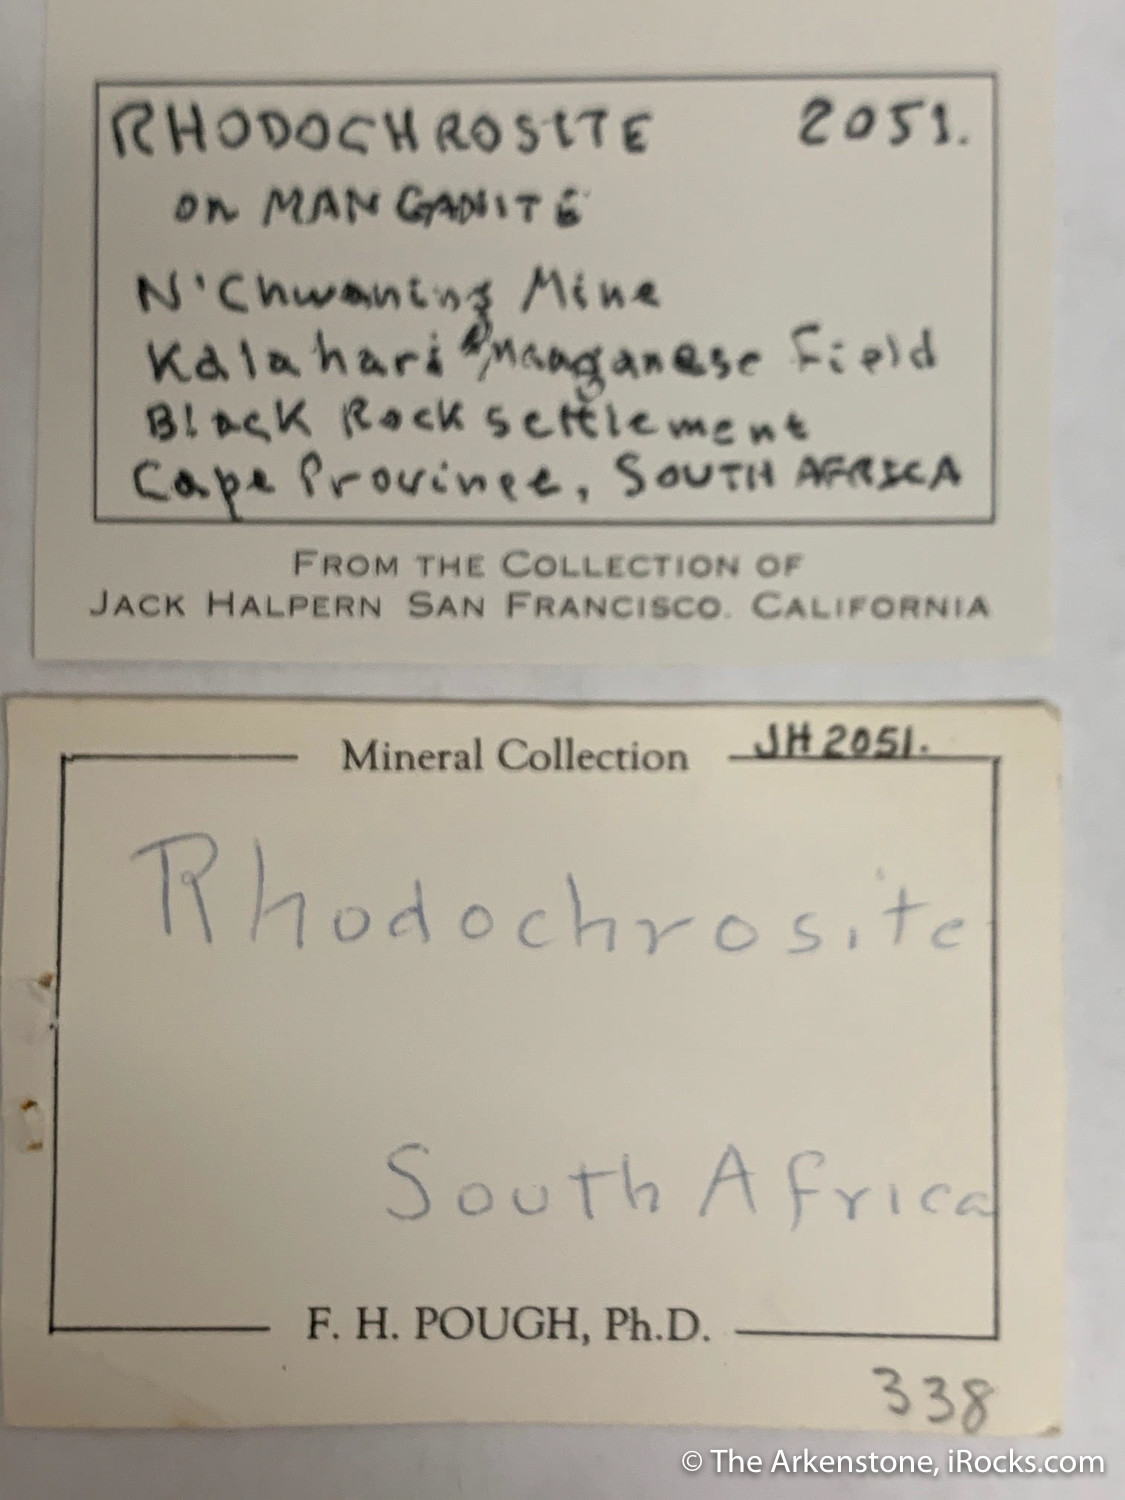 RHODOCHROSITE 2051.
on MANGANITE
N'Chwaning Mine
Kalahari Manganese Field
Black Rock settlement
Cape Province, SOUTH AFRICA
FROM THE COLLECTION OF
JACK HALPERN SAN FRANCISCO. CALIFORNIA
Mineral Collection JH 2051.
Rhodochrosite
South Africa
F. H. POUGH, Ph.D.
338
© The Arkenstone, iRocks.com